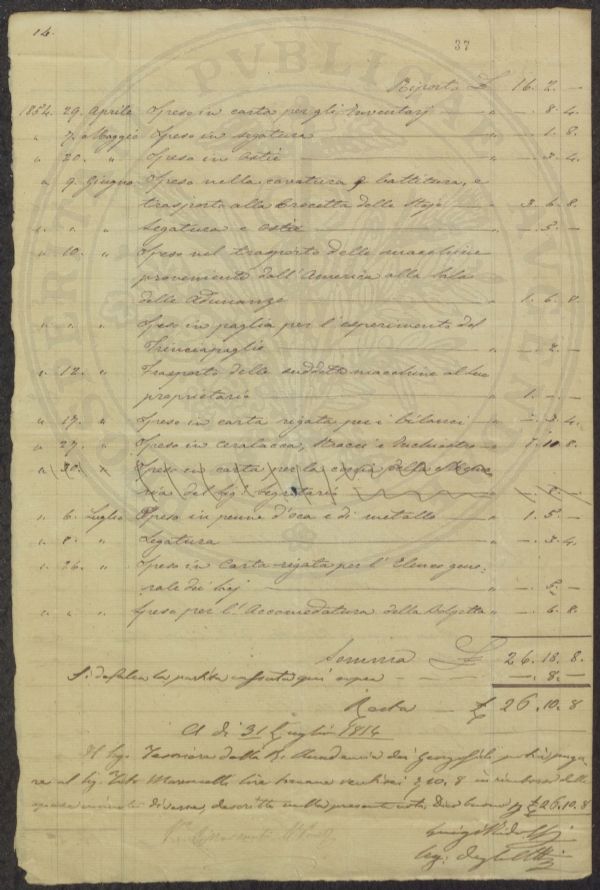 14.
37
Riporto £ 16. 2. —
1854. 29. Aprile Spese in carta per gli Inventarj — " — . 8. 4.
" 7. Maggio Spese in legatura — " — . 1. 8.
" 20. " Spese in Ostie — " — . 3. 4.
" 9. Giugno Spese nella cavatura e battitura, e
trasporto alla Crocetta delle — " 3. 6. 8.
" " " Legatura e Ostie — " — . 5. —
" 10. " Spese nel trasporto delle macchine
provenienti dall'America alla Sala
delle Adunanze — " 1. 6. 8.
" " " Spese in paglia per l'esperimento del
Trinciapaglie — " — . 2. —
" 12. " Trasporto delle suddette macchine al suo
proprietario — " 1. — . —
" 17. " Spese in carta rigata per i bilanci — " — . 3. 4.
" 27. " Spese in ceralacca, e Inchiostro — " 1. 10. 8.
" 30. " Spese in carta per la copia della Memo=
ria del Sig. Segretario — " — . 8. —
" 6. Luglio Spese in penne d'oca e di metallo — " 1. 5. —
" 8. " Legatura — " — . 3. 4.
" 26. " Spese in Carta rigata per l'Elenco gene=
rale dei Socj — — . 5. —
" " " Spese per l'Accomodatura della — " — . 6. 8.
Somma £ 26. 18. 8.
Si defalca la partita qui sopra — — . 8. —
Resta £ 26. 10. 8
A dì 31 Luglio
Il Sig. Tesoriere della R. Accademia dei Georgofili
re al Sig. lire toscane ventisei 10. 8 in rimborso delle
spese diverse, descritte nella presente nota £ 26.10.8
PVBLICAE